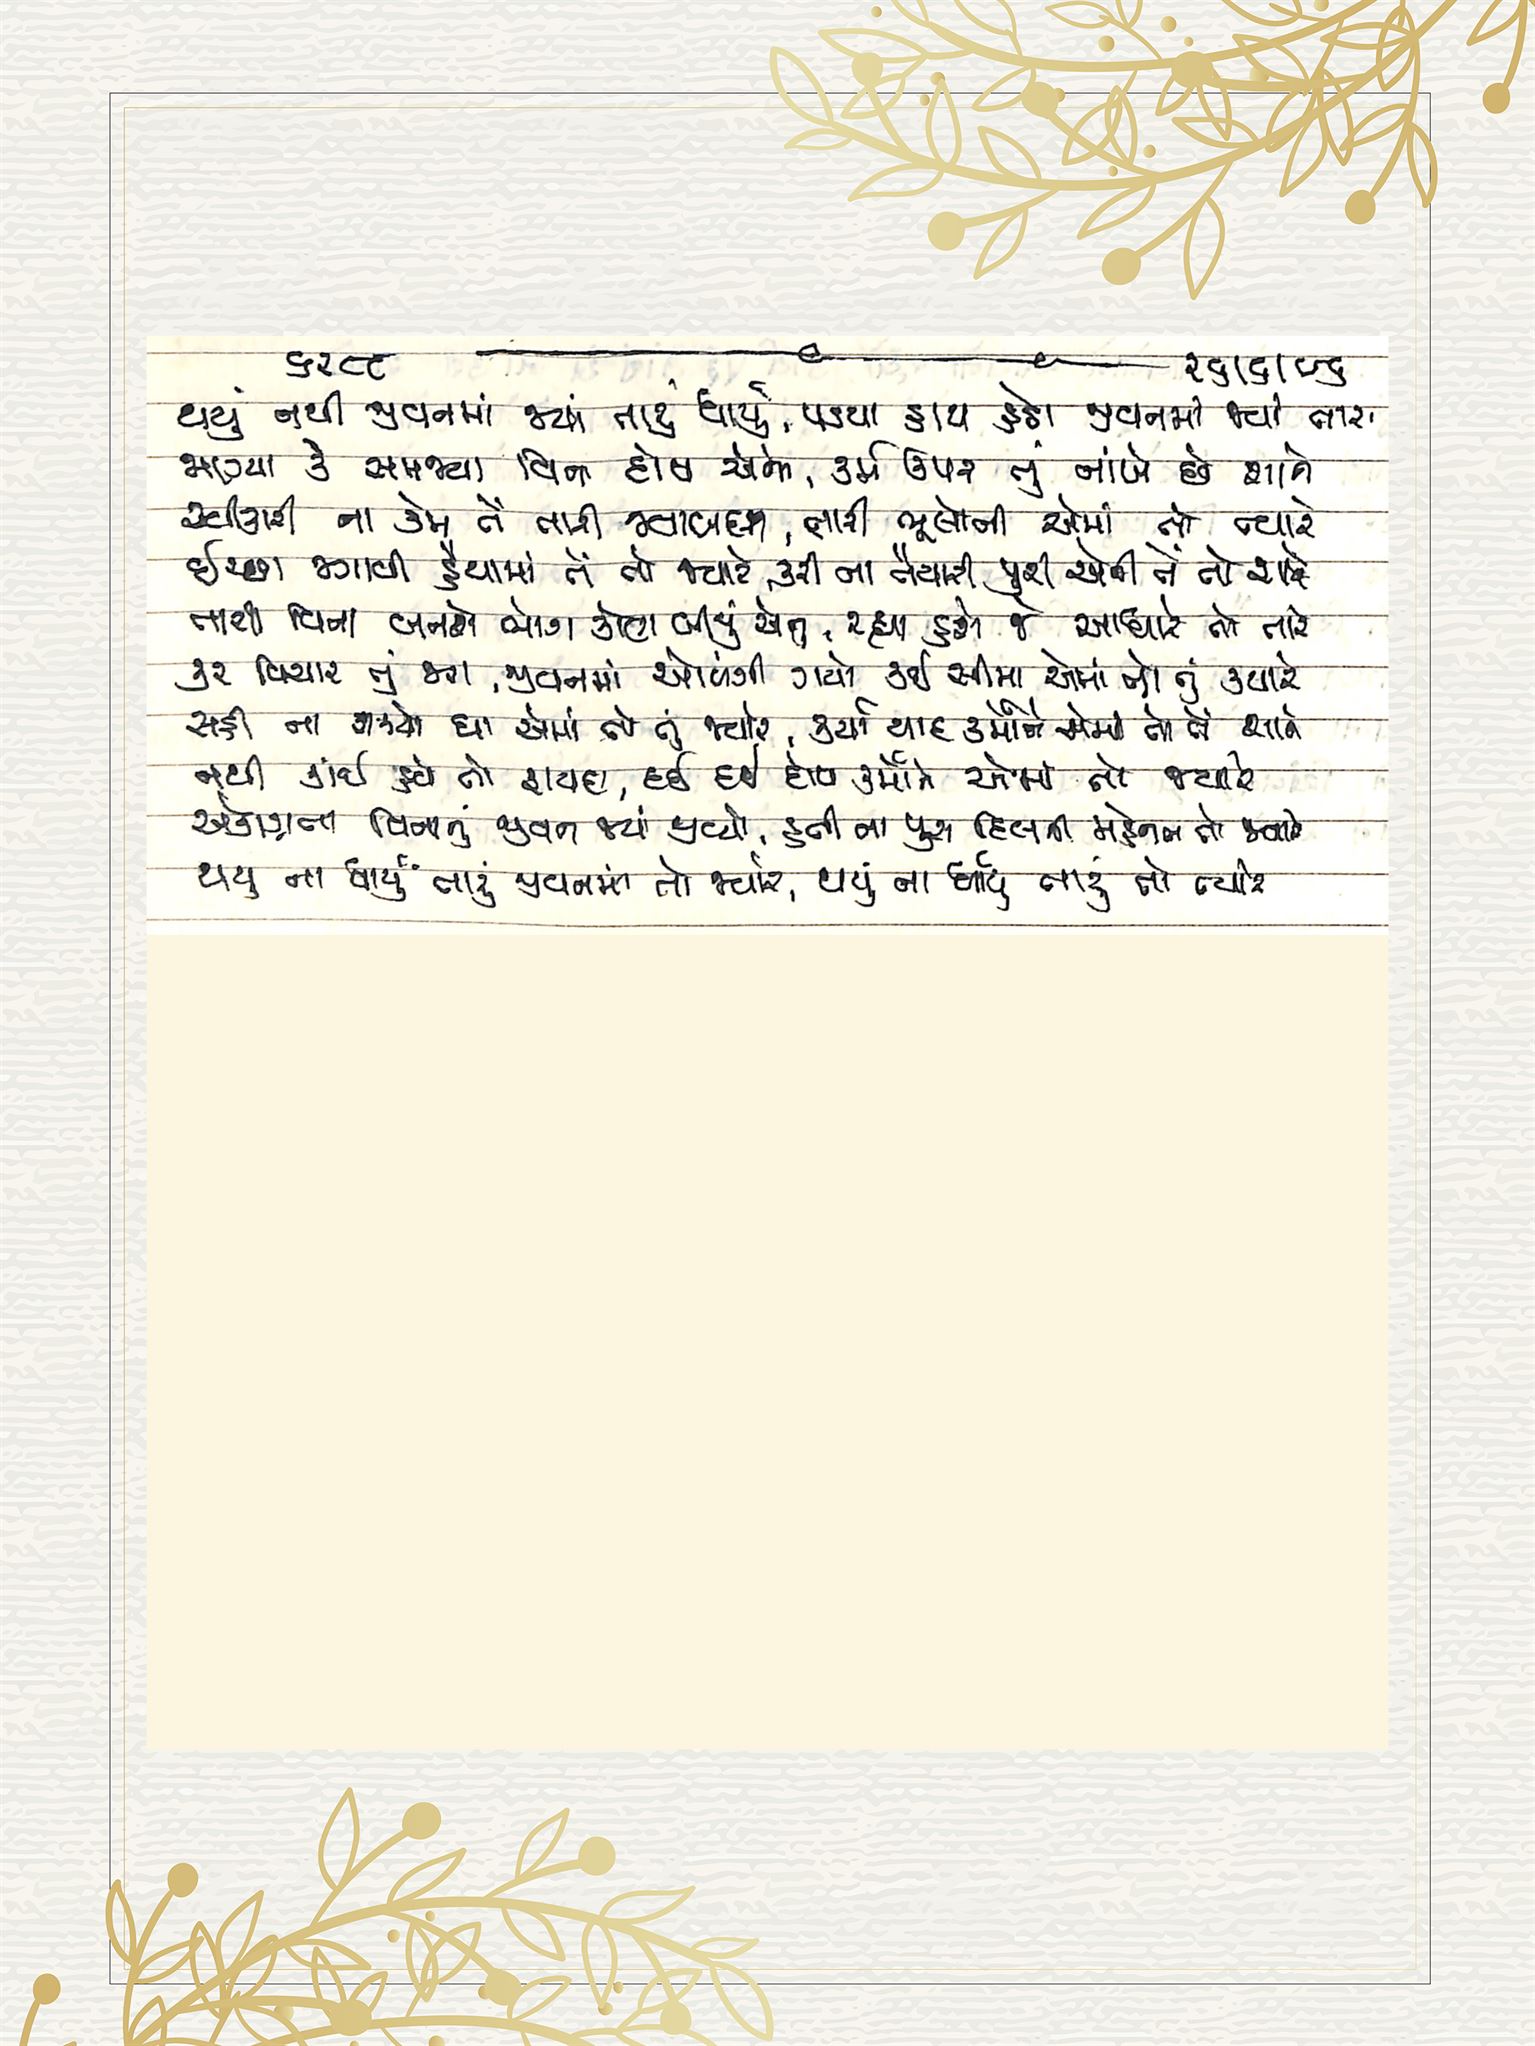 ૬૨૮૮ ૨૬/૬/૯૬
થયું નથી જીવનમાં જ્યાં તારું ધાર્યું, પડયા હાથ હેઠા જીવનમાં જ્યાં તારા
જાણ્યા કે સમજ્યા વિના દોષ એને, કર્મ ઉપર તું નાંખે છે શાને
સ્વીકારી ના કેમ તેં તારી જવાબદારી, તારી ભૂલોની એમાં તો ત્યારે
ઈચ્છા જગાવી હૈયામાં તેં તો જ્યારે, કરી ના તૈયારી પુરી એની તેં તો શાને
તારી વિના બનશે ભોગ કોણ બીજું એનું, રહ્યા હશે જે આધારે તો તારે
કર વિચાર તું જરા, જીવનમાં ઓળંગી ગયો કઈ સીમા એમાં તો તું ક્યારે
સહી ના શક્યો ઘા એમાં તો તું જ્યારે, કર્યા યાદ કર્મોને એમાં તો તેં શાને
નથી કાંઈ હવે તો ફાયદા, દઈ દઈ દોષ કર્મોને એમાં તો જ્યારે
એકાગ્રતા વિનાનું જીવન જ્યાં જીવ્યો, હતી ના પુરી દિલની મહેનત તો જ્યારે
થયુ ના ધાર્યું તારું જીવનમાં તો જ્યારે, થયું ના ધાર્યું તારું તો ત્યારે